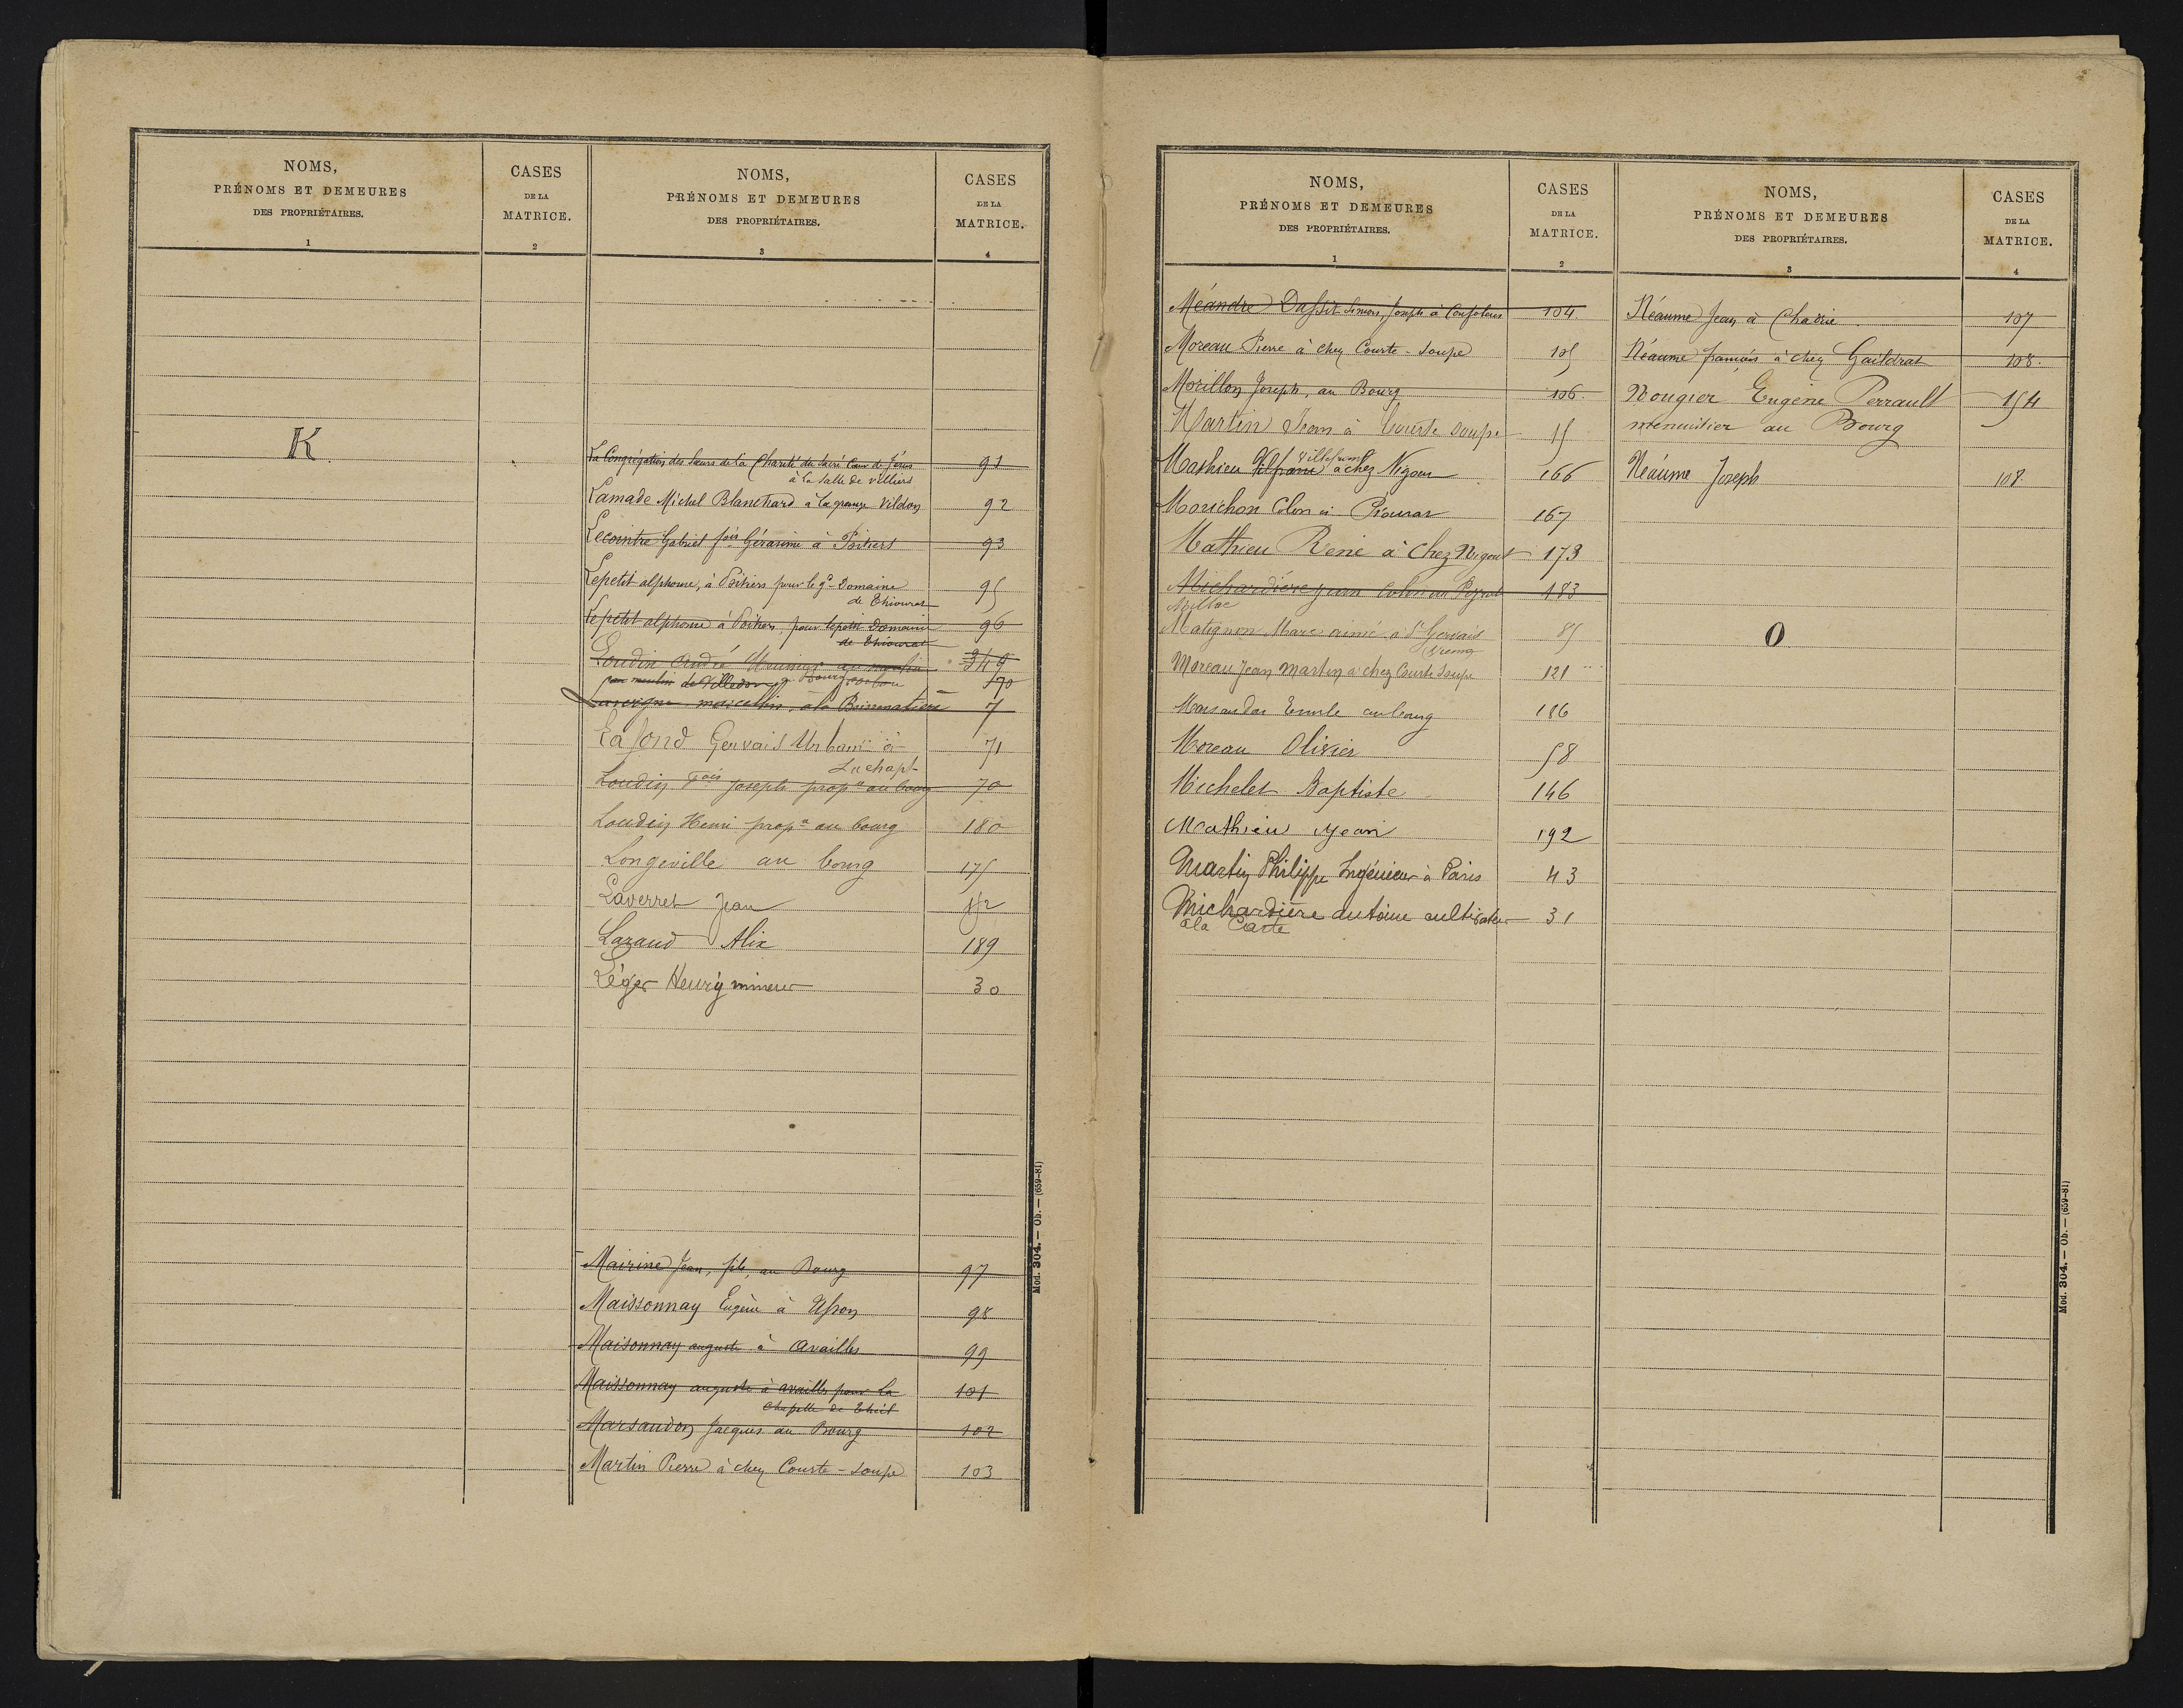 NOMS,
PRÉNOMS ET DEMEURES
DES PROPRIÉTAIRES.
1
CASES
DE LA
MATRICE.
2
NOMS,
PRÉNOMS ET DEMEURES
DES PROPRIÉTAIRES.
3
CASES
DE LA
MATRICE.
4
K
La Congrégation des Sœurs de la Charité du Sacré Cœur de Jésus 91
à la Salle de Villiers
Lamade Michel Blanchard à la grange Vildon 92
Lecointre Gabriel fois Gérasime à Poitiers 93
Lepetit alphonse, à Poitiers pour le gd Domaine 95
de Thiourat
Lepetit alphonse à Poitiers, pour le petit Domaine 96
de Thiourat
Loudin André Meunier au moulin 349
au moulin de Villedon Bourg 170
Lavergne marcellin, à la 7
Lafond Gervais Urbain à 71
Lachapt
Loudin Fois Joseph propre au bourg 70
Loudin Henri propre au bourg 180
Longeville au bourg 175
Laverret Jean 52
Lazaud Alix 189
Léger Henry mineur 30
Mairine Jean, fils, au Bourg 97
Maissonnay Eugène à Usson 98
Maisonnay auguste à Availles 99
Maissonnay auguste à availles pour la 101
Chapelle de Theil
Marsaudon Jacques au Bourg 102
Martin Pierre à chez Courte-soupe 103
Mod. 304. — Ob. — (659-81)
NOMS,
PRÉNOMS ET DEMEURES
DES PROPRIÉTAIRES.
1
CASES
DE LA
MATRICE.
2
NOMS,
PRÉNOMS ET DEMEURES
DES PROPRIÉTAIRES.
3
CASES
DE LA
MATRICE.
4
Méandre Dassit Simon, Joseph à Confolens 104.
Moreau Pierre à chez Courte-soupe 105
Morillon Joseph, au Bourg 106.
Martin Jean à Courte soupe 15
Villefranc
Mathieu à chez Nigout 166
Morichon Colon à Piourat 167
Mathieu René à Chez Nigout 173
Michardière Jean Colon au Peyrat 183
Matignon Marc aimé à St Gervais 85
Moreau Jean Martin à chez Courte Soupe 121
Marsaudon Emile au bourg 186
Moreau Olivier 58
Michelet Baptiste 146
Mathieu Jean 192
Martin Philippe Ingénieur à Paris 43
Michardière Antoine cultivateur 31
à la Carte
Néaume Jean à Chairie 107
Néaume françois à chez Gaildrat 108.
Nougier Eugène Perrault 154
menuisier au Bourg
Néaume Joseph 108.
O
Mod. 304. — Ob. — (659-81)